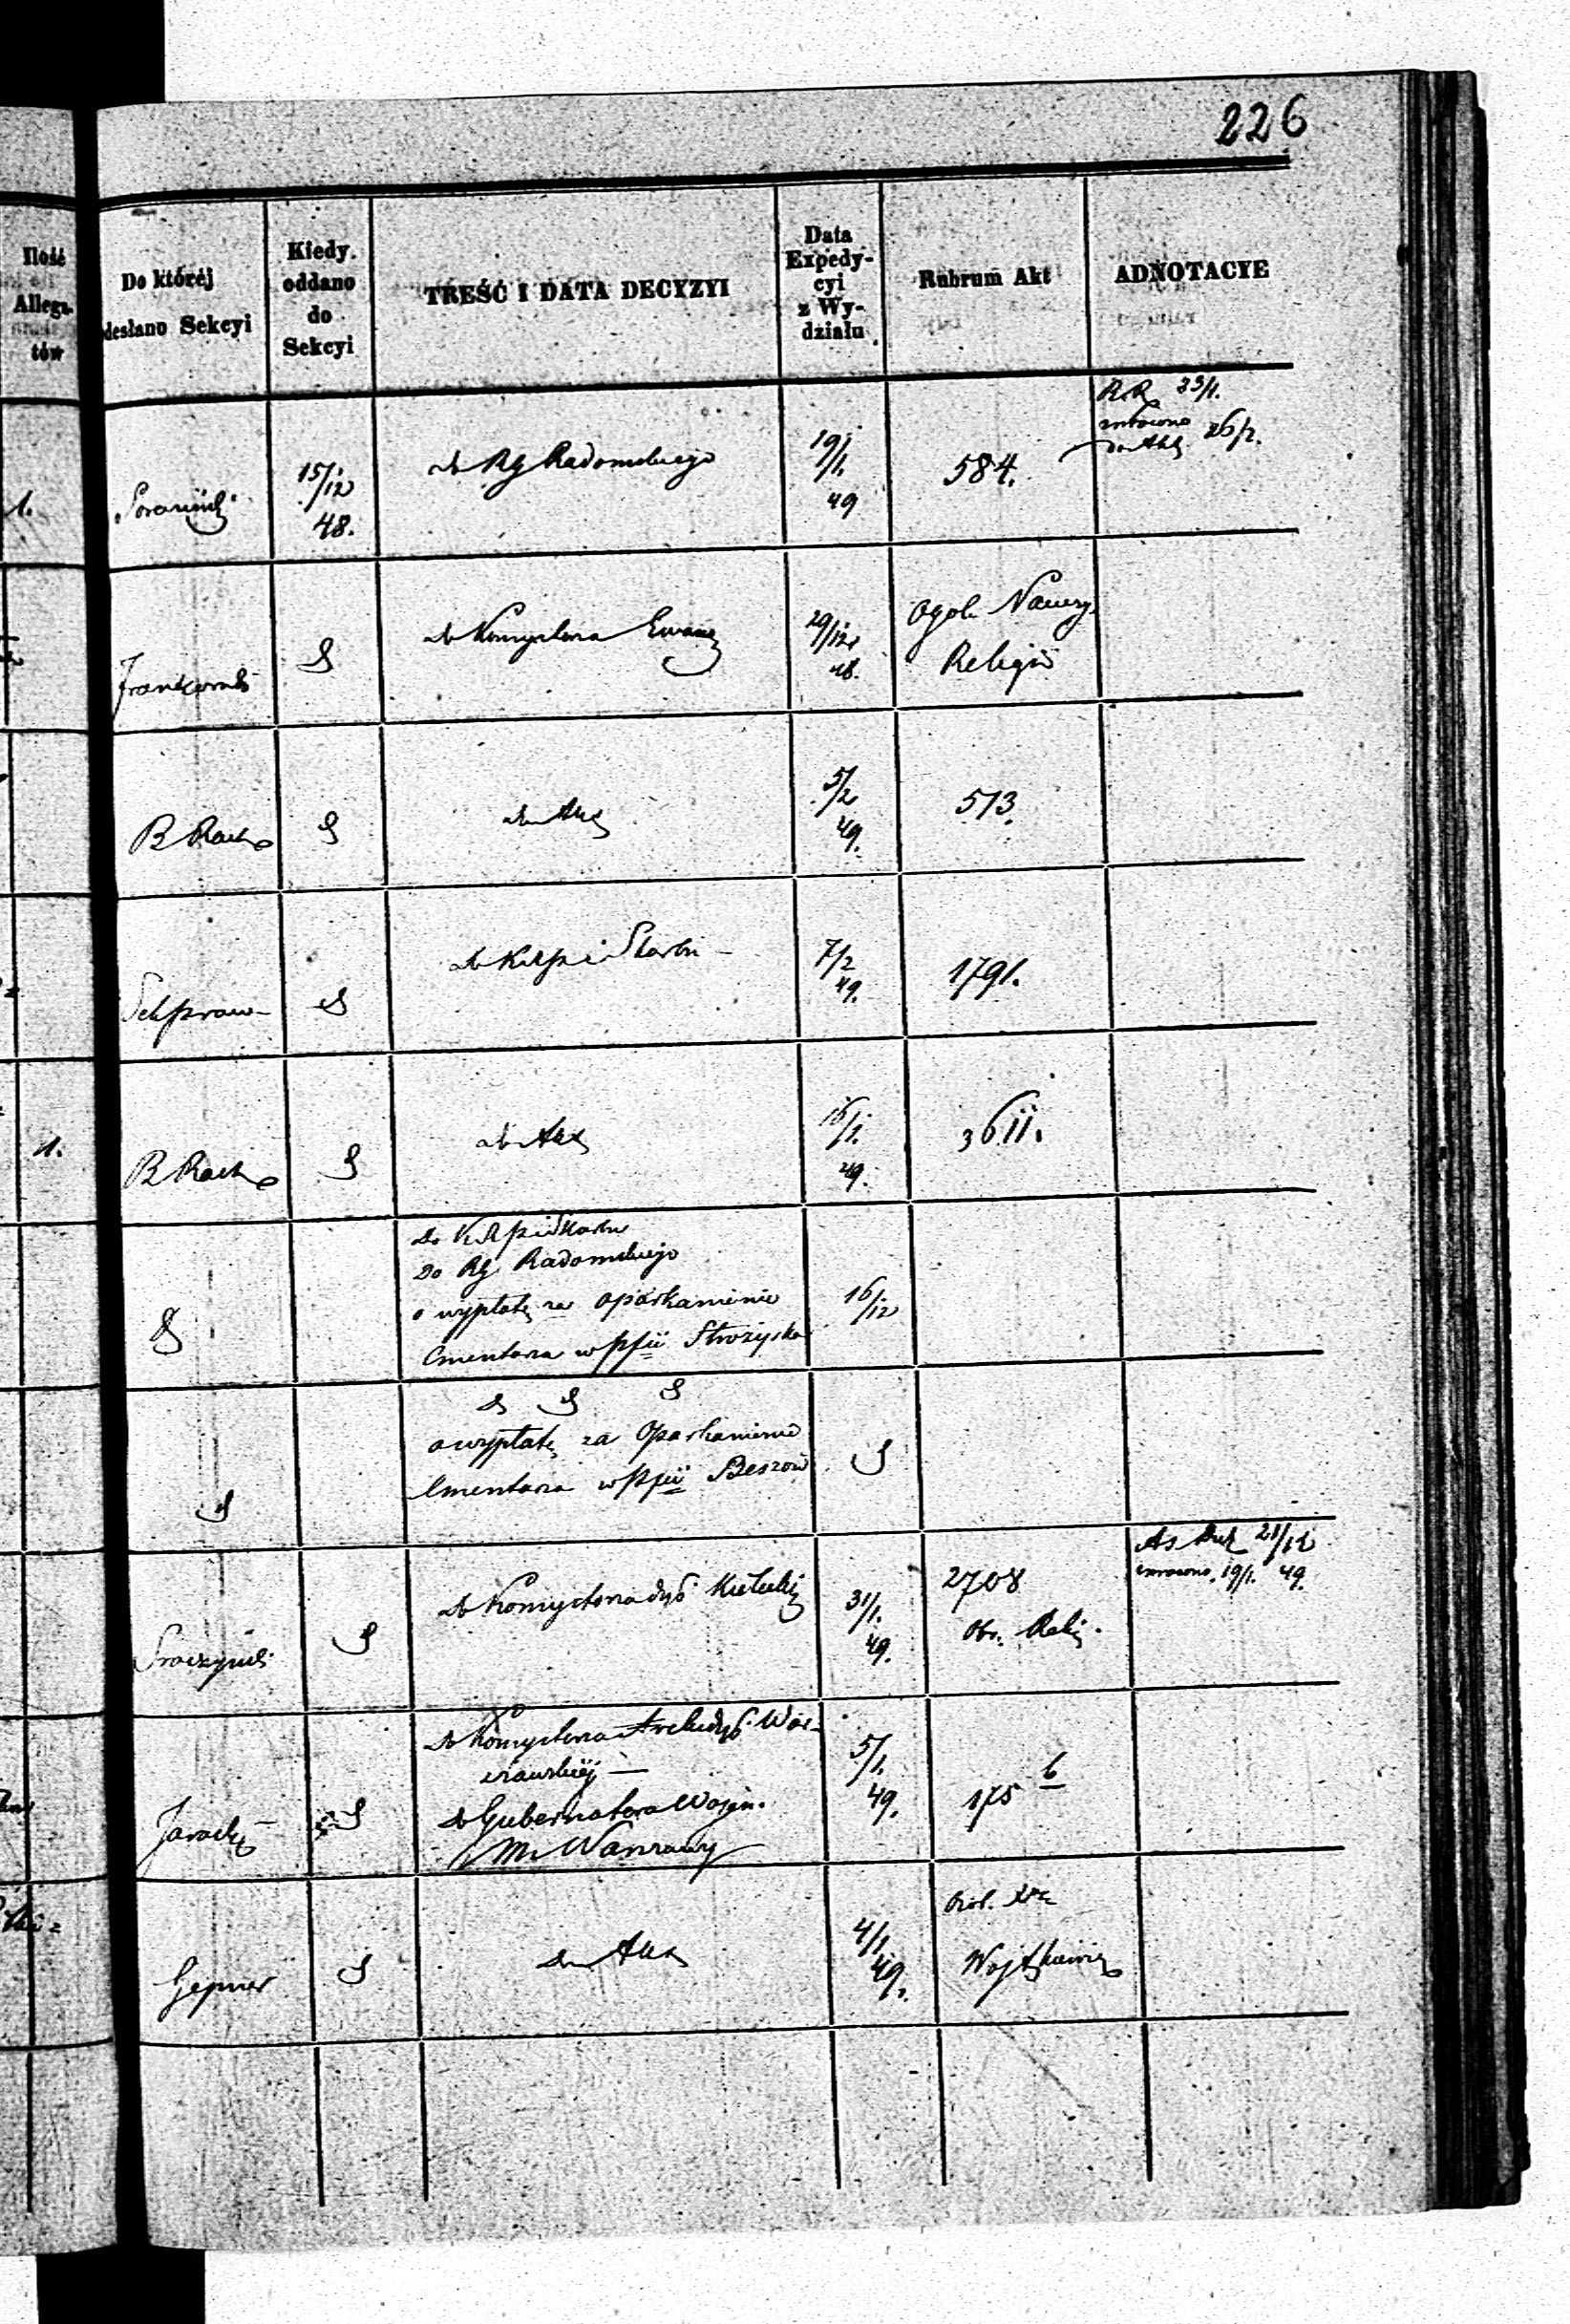 226
Ilość
Allega-
tów
Do któréj
desłano Sekcyi
Kiedy
oddano
do
Sekcyi
TREŚĆ I DATA DECYZYI
Data
Expedy-
cyi
z Wy-
działu
Rubrum Akt
ADNOTACYE
1.
15/12
48.
do RG Radomskiego
19/1
49
584.
R.R. 23/1.
zwrócono
do Akt 26/2.
do Konsystorza Ewang
29/12
48.
Ogól. Nauczy.
Religii
B Rach
do Akt
5/2
49.
513.
Sek praw
do KRPiSkarbu
7/2
49.
1791.
1.
B Rach
do Akt
16/1.
49.
3611.
do KRPiSkarbu
Do RG Radomskiego
o wypłatę za oparkanienie
Cmentarza w pfii Strożyska
16/12
o wypłatę za Oparkanienie
Cmentarza w pfii Beszow
do Konsystorza dyó Kielecki
31/1.
49.
2708
Obr. Reli.
21/12
zwrócono 19/1. 49.
do Konsystorza Archidyó War-
szawskiéj
do Gubernatora Wojen.
M. Warszawy
5/1.
49.
175 b
Gepner
do Akt
4/1
49.
Wojtkiewicz